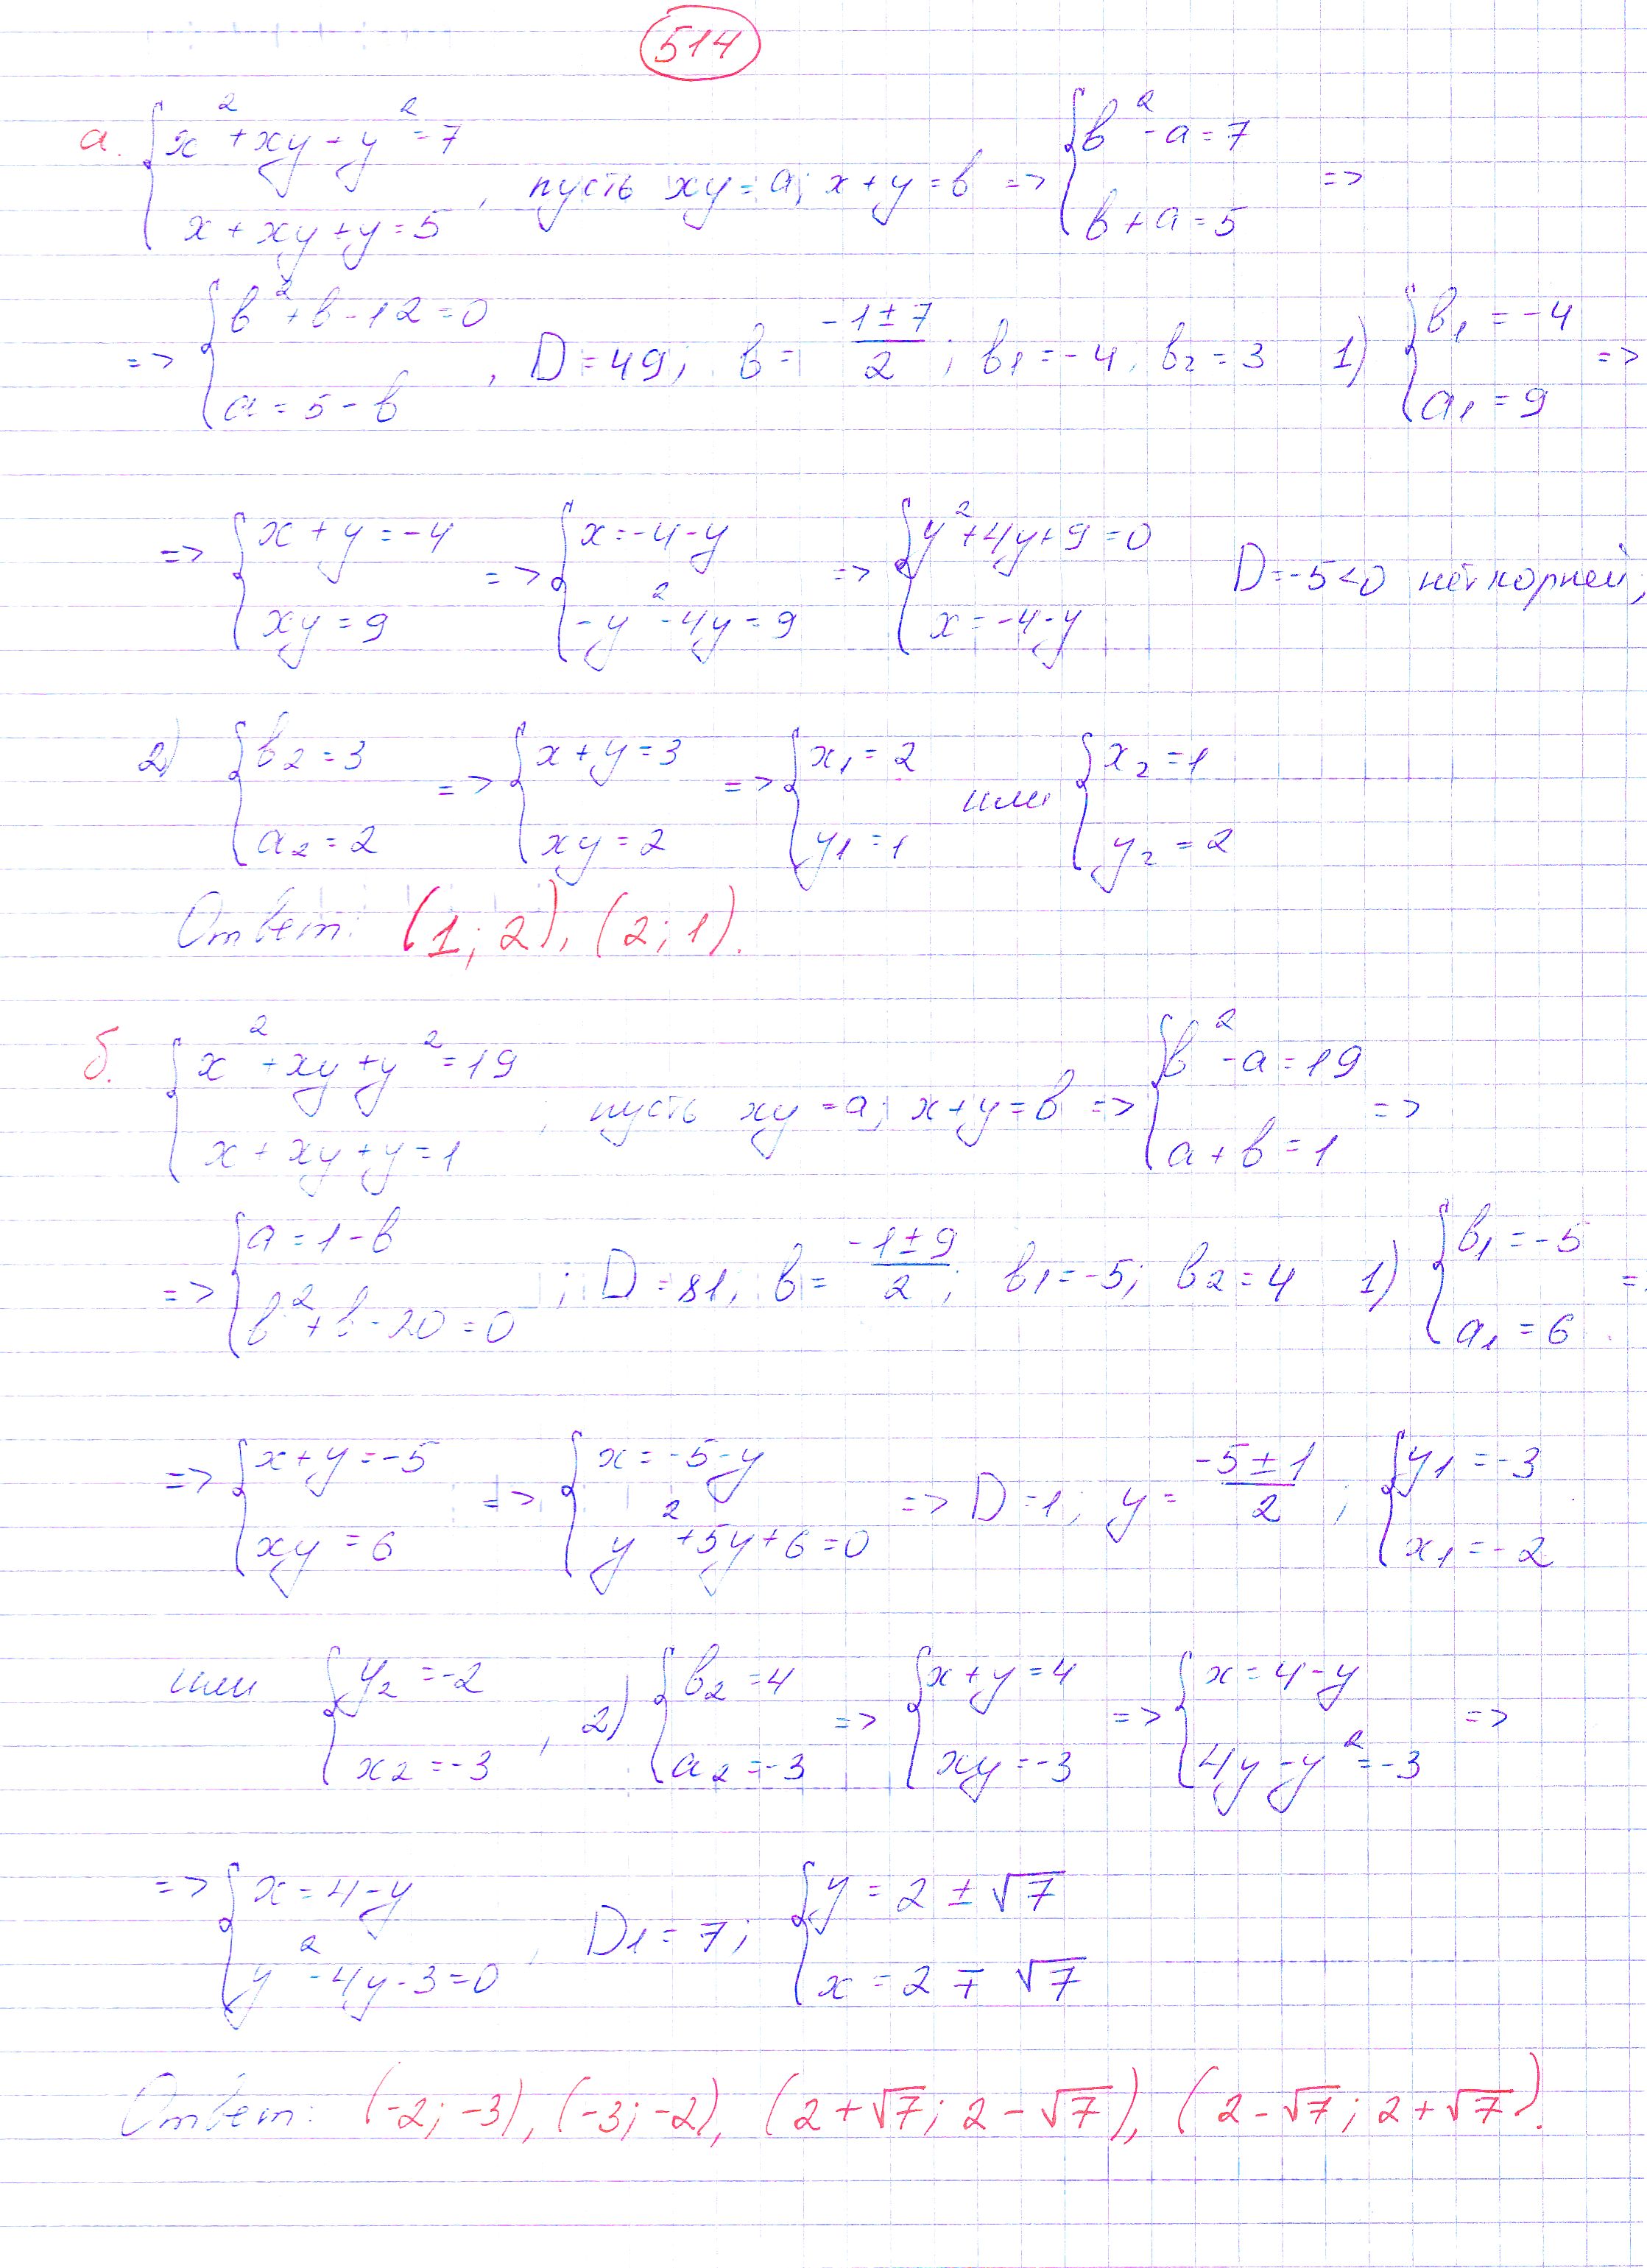 514
а. { x² + xy + y² = 7
x + xy + y = 5 , пусть xy = a; x + y = b => { b² - a = 7
b + a = 5 =>
=> { b² + b - 12 = 0
a = 5 - b , D = 49; b = (-1 ± 7)/2 ; b1 = -4; b2 = 3 1) { b1 = -4
a1 = 9 =>
=> { x + y = -4
xy = 9 => { x = -4 - y
-y² - 4y = 9 => { y² + 4y + 9 = 0
x = -4 - y D = -5 < 0 нет корней,
2) { b2 = 3
a2 = 2 => { x + y = 3
xy = 2 => { x1 = 2
y1 = 1 или { x2 = 1
y2 = 2
Ответ: (1; 2), (2; 1).
б. { x² + xy + y² = 19
x + xy + y = 1 , пусть xy = a; x + y = b => { b² - a = 19
a + b = 1 =>
=> { a = 1 - b
b² + b - 20 = 0 ; D = 81; b = (-1 ± 9)/2 ; b1 = -5; b2 = 4 1) { b1 = -5
a1 = 6 =
=> { x + y = -5
xy = 6 => { x = -5 - y
y² + 5y + 6 = 0 => D = 1; y = (-5 ± 1)/2 ; { y1 = -3
x1 = -2
или { y2 = -2
x2 = -3 , 2) { b2 = 4
a2 = -3 => { x + y = 4
xy = -3 => { x = 4 - y
4y - y² = -3 =>
=> { x = 4 - y
y² - 4y - 3 = 0 , D1 = 7; { y = 2 ± √7
x = 2 ∓ √7
Ответ: (-2; -3), (-3; -2), (2 + √7; 2 - √7), (2 - √7; 2 + √7).